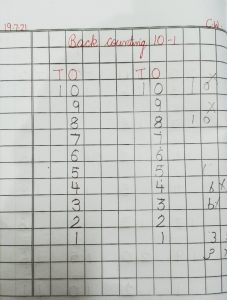 19.7.21 C.W.
Back counting 10-1
T O T O
1 0 1 0 1 0
9 9
8 8 1 0
7 7
6 6
5 5
4 4
3 3
2 2
1 1 3